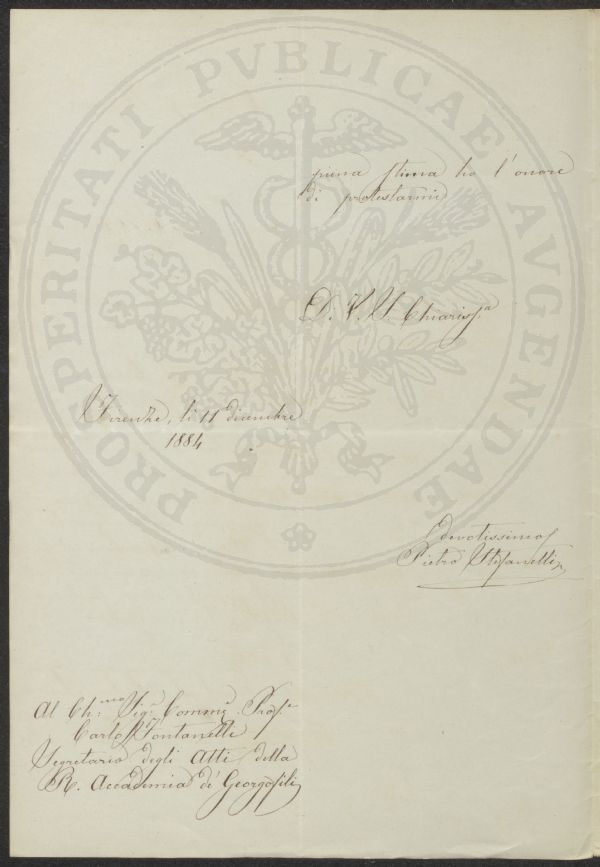 PROSPERITATI PVBLICAE AVGENDAE
piena stima ho l'onore
di protestarmi
Di V. S. Chiariss.a
Firenze, li 11 dicembre
1884
devotissimo
Pietro Stefanelli
Al Ch.mo Sig.r Comm.e Prof.e
Carlo Fontanelli
Segretario degli Atti della
R. Accademia di Georgofili